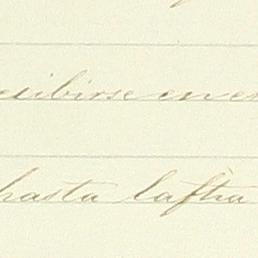 cibirse en e
hasta la fha